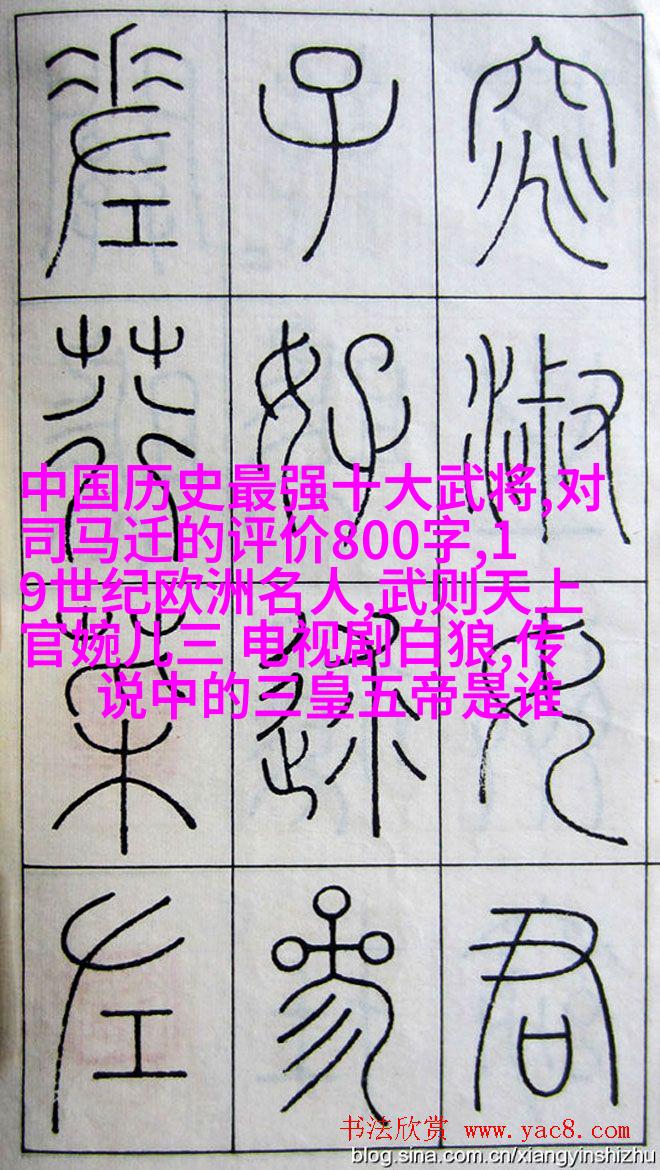 窕淑女君
子好逑参
差荇菜左
中国历史最强十大武将,对
司马迁的评价800字,1
9世纪欧洲名人,武则天上
官婉儿三 电视剧白狼,传
说中的三皇五帝是谁
书法欣赏 www.yac8.com
blog.sina.com.cn/xiangyinshizhu